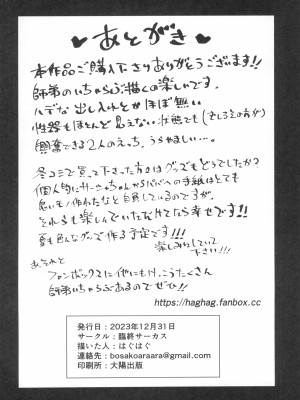 ♥あとがき♥
本作品ご購入下さりありがとうございます!!
師弟のいちゃらぶ描くの楽しいです。
ハデな出し入れとかほぼ無い
性器もほとんど見えない状態でも(むしろその方が)
興奮できる2人のえっち、うらやましい…。
冬コミで買って下さった方はグッズもどうでしたか?
個人的にサーニャちゃんからパパへの手紙はとても
良いもの作れたなと自負しているのですが、
それも楽しんでいただけてたら幸せです!!
夏も色んなグッズ作る予定です!!!
楽しみにしていて
下さい!!!
あ、それと
ファンボックスに他にもけっこうたくさん
師弟いちゃらぶあるのでぜひ!!
https://haghag.fanbox.cc
発行日:2023年12月31日
サークル:臨終サーカス
描いた人:はぐはぐ
連絡先:bosakoaraara@gmail.com
印刷所:大陽出版